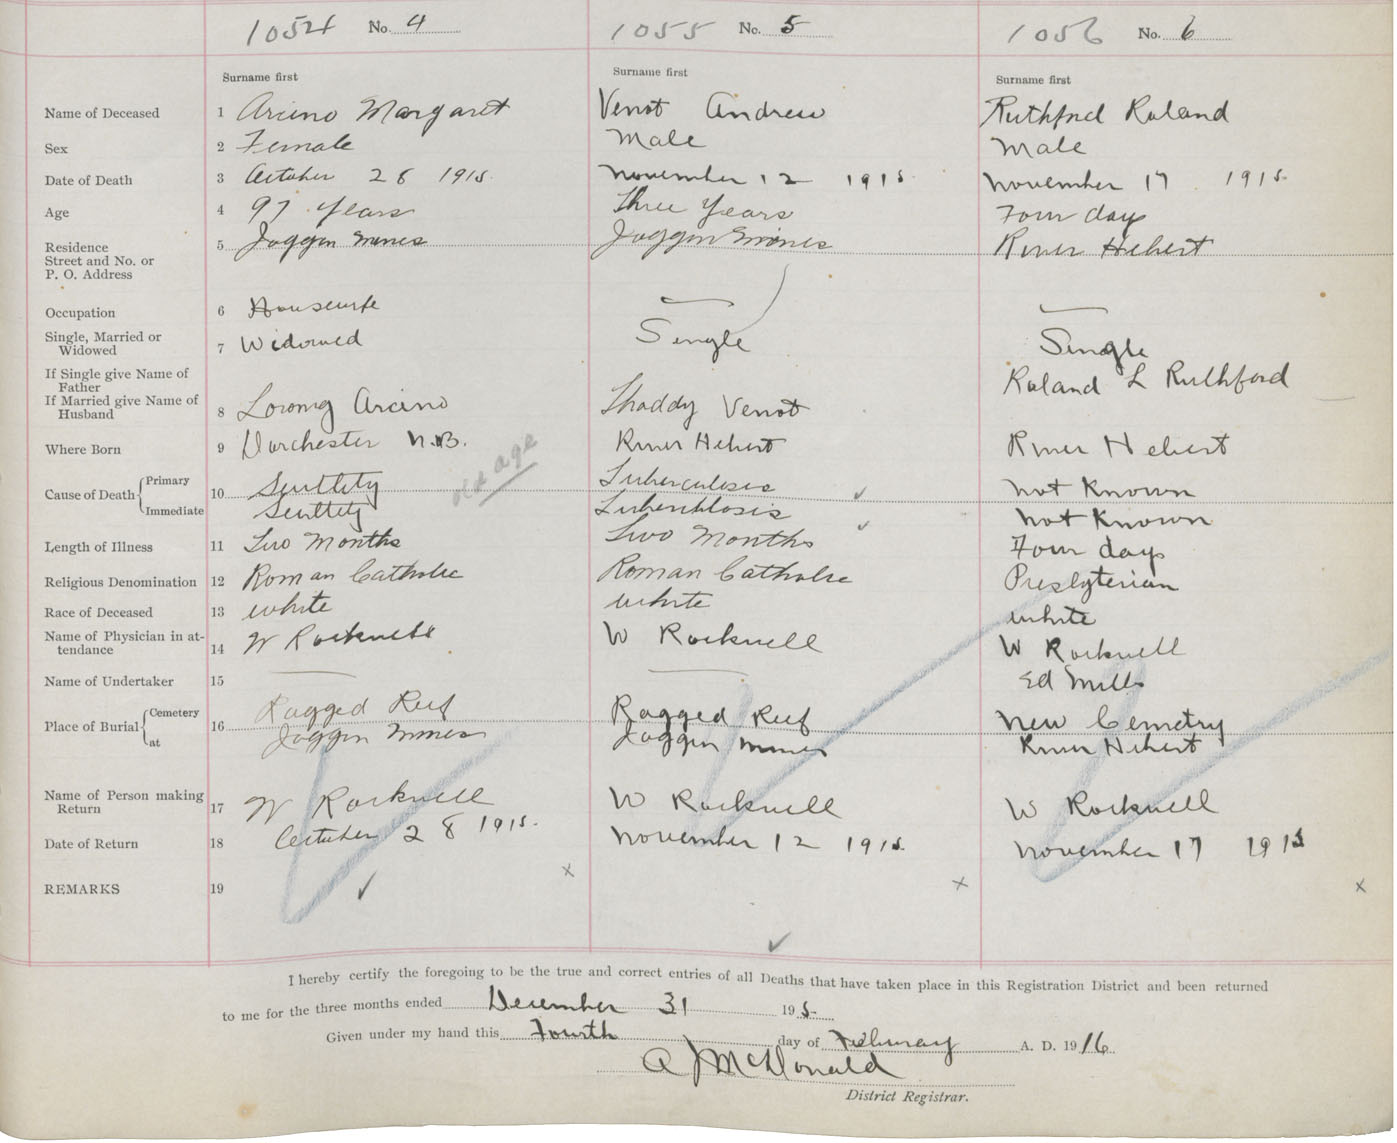 1054 No. 4 1055 No. 5 1056 No. 6
Surname first Surname first Surname first
Name of Deceased 1 Arceno Margaret Venot Andrew Ruthford Roland
Sex 2 Female Male Male
Date of Death 3 October 28 1915. November 12 1915 November 17 1915.
Age 4 97 Years Three Years Four days
Residence
Street and No. or 5 Joggin Mines Joggin Mines River Hebert
P. O. Address
Occupation 6 Housewife
Single, Married or
Widowed 7 Widowed Single Single
If Single give Name of
Father Roland L Ruthford
If Married give Name of
Husband 8 Arceno Thaddy Venot
Where Born 9 Dorchester N.B. River Hebert River Hebert
old age
Cause of Death Primary 10 Senility Tuberculosis not Known
Immediate Senility Tuberclosis not Known
Length of Illness 11 Two Months Two Months Four days
Religious Denomination 12 Roman Catholic Roman Catholic Presbyterian
Race of Deceased 13 white white white
Name of Physician in at-
tendance 14 W Rockwell W Rockwell W Rockwell
Name of Undertaker 15 Ed Mills
Place of Burial Cemetery 16 Ragged Reef Ragged Reef New Cemetry
at Joggin Mines Joggin Mines River Hebert
Name of Person making
Return 17 W Rockwell W Rockwell W Rockwell
Date of Return 18 October 28 1915. November 12 1915. November 17 1915
REMARKS 19
I hereby certify the foregoing to be the true and correct entries of all Deaths that have taken place in this Registration District and been returned
to me for the three months ended December 31 19 5
Given under my hand this Fourth day of Febuary A. D. 19 16
A J McDonald
District Registrar.